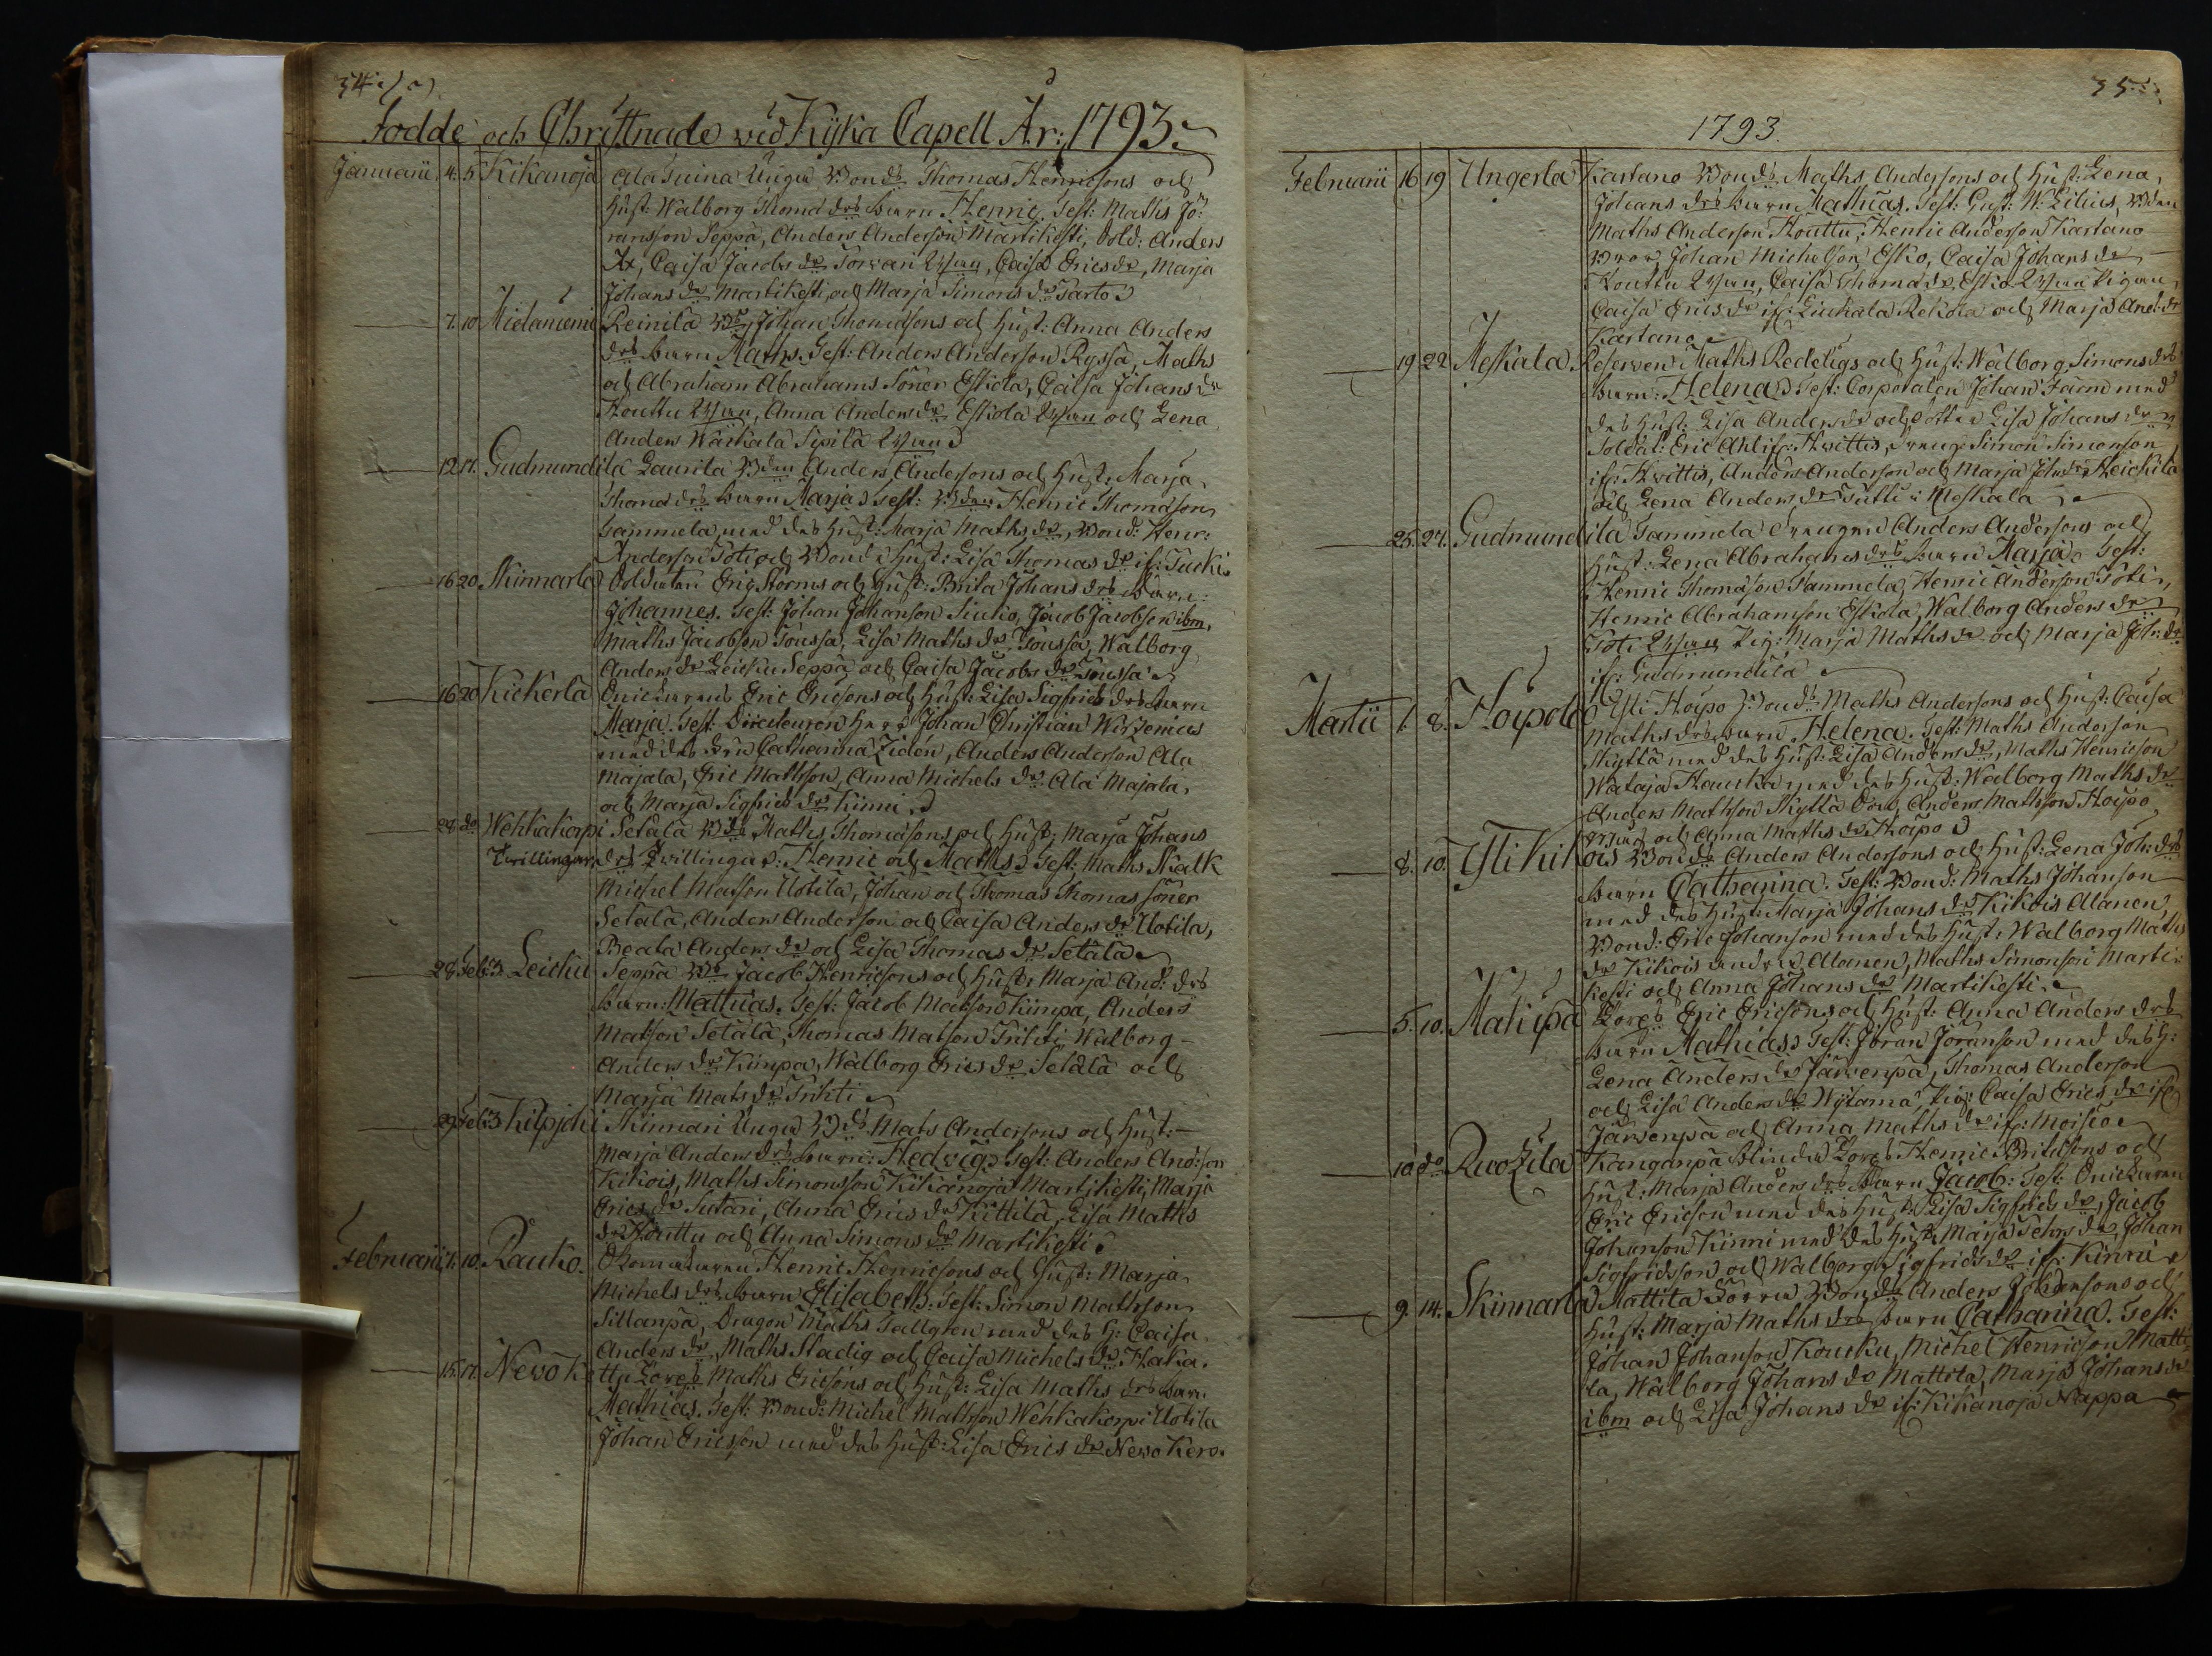 34.
Födde och Christnade wid Kijka Capell År: 1793.
Januarii 4. 5 Kikanoja Ala Tuina Unga Bonds Thomas Henricsons och
Hust: Walborg Thomædrs barn Henric. Test: Maths Jö-
ransson Seppä, Anders Anderson Martikesti, Sold: Anders
Ax, Caisa Jacobs dr Torvari, Caisa Erics dr, Marja
Johans dr Martikesti och Marja Simons dr Parto
7. 10 Mielaniemi Reinilä Johan Thomæsons och Hust: Anna Anders
drs barn Maths. Test: Anders Anderson Ryssä, Maths
och Abraham Abrahams Söner Eskola, Caisa Johans dr
Houttu, Anna Anders dr Eskola och Lena
Anders Wäckälä Sipilä
12 17. Gudmundila Laurila Anders Andersons och Hust: Marja
Thomædrs barn Marja Test: Henric Thomæson
Sammela med des Hust: Marja Maths dr, Bond: Henr:
Anderson Toti och Bond: Hust: Lisa Thomas dr if: Tucki
16 20 Skinnarla Soldaten Eric Storms och Hust: Brita Johans drs Barn:
Johannes. Test: Johan Johanson Siukio, Jacob Jacobson ibm,
Maths Jacobson Toussa, Lisa Maths dr Toussa, Walborg
Anders dr Leicku Seppä och Caisa Jacobs dr Toussa
16 20 Kickerlä Eric Ericsons och Hust: Lisa Sigfrids drs Barn
Marja. Test: Directeuren Herr Johan Christian Wirzenius
med des Fru Catharina Zidén, Anders Anderson Ala
Majala, Eric Mathson, Anna Michels dr Ala Majala,
och Marja Sigfrids dr Kinni
28 do Wehkakorpi Setälä Maths Thomæsons och Hust: Marja Johans
Twillingar drs Twillingar: Henric och Maths Test: Maths Skalk
Michel Matson Uotila, Johan och Thomas Thomas söner
Setälä, Anders Anderson och Caisa Anders dr Uotila,
Beata Anders dr och Lisa Thomas dr Setälä
28 Feb: 3 Leicku Seppä Jacob Henricsons och Hust: Marja And: drs
Barn: Mathias. Test: Jacob Matson Kimpa, Anders
Matson Setälä, Thomas Matson Trihti, Walborg
Anders dr Kimpa, Walborg Erics dr Setälä och
Marja Mats dr Trihti
29 Feb: 3 Kilpjoki Skinnari Unga Mats Andersons och Hust:
Marja Anders drs barn: Hedvig Test: Anders And:son
Kikois, Maths Simonsson Kikanoja Martikesti, Marja
Erics dr Sutari, Anna Erics dr Kittilä, Lisa Maths
dr Houttu och Anna Simons dr Martikesti
Februarii 7. 10. Rauko. Henric Henricsons och Hust: Marja
Michels drs barn Elisabeth: Test: Simon Mathson
Sillanpä, Dragon Maths Tallgren med des H: Caisa
Anders dr, Maths Stadig och Caisa Michels dr Haka.
15. 17. Newo Kettu Maths Ericsons och Hust: Lisa Maths drs barn
Mathias. Test: Bond: Michel Mathson Wehkakorpi Uotila
Johan Ericson med des Hust: Lisa Erics dr Newo Kero.
35.
1793.
Februarii 16 19 Ungerla Kartano Bonds Maths Andersons och Hust: Lena
Johans drs barn Mathias. Test: Gust: W: Lilius,
Maths Anderson Houttu, Henric Anderson Kartano
Johan Michelson Esko, Caisa Johans dr
Houttu, Caisa Thomædr Esko Pigan
Caisa Erics dr if: Liuhala Rekola och Marja And: dr
Kartano
19 22 Meskala. Reserven Maths Redeligs och Hust: Walborg Simons drs
barn: Helena Test: Corporalen Johan Farm med
des Hust: Lisa Anders dr och Lisa Johans dr
Soldat: Eric Ahl if: Hvittis, dreng Simon Simonson
if: Hvittis, Anders Anderson och Marja Joh: dr Heickilä
och Lena Anders dr Tutti i Meskala
25. 27. Gudmundila Sammela drengen Anders Andersons och
Hust: Lena Abrahams drs barn Marja Test:
Henric Thomæson Sammela, Henric Anderson Toti,
Henric Abrahamson Eskola, Walborg Anders dr
Toti Pig: Marja Maths dr och Marja Joh: dr
if: Gudmundila
Martii 1. 8. Hoipola Ysti Hoipo Bonds Maths Andersons och Hust: Caisa
Maths drs barn Helena. Test: Maths Anderson
Skyttä med des Hust: Lisa Anders dr, Maths Henricson
Wataja Hauska med des Hust: Walborg Maths dr
Anders Mathson Skyttä Anders Mathson Hoipo
och Anna Maths dr Hoipo
8. 10. Ysti Kikois Bonds Anders Andersons och Hust: Lena Joh: drs
barn Catharina. Test: Bond: Maths Johanson
med des Hust: Marja Johans dr Kikois Alanen,
Bond: Eric Johanson med des Hust: Walborg Maths
dr Kikois Alanen, Maths Simonson Marti-
kesti och Anna Johans dr Martikesti
5. 10. Makipä Eric Ericsons och Hust: Anna Anders drs
barn Mathias Test: Jöran Jöranson med des H:
Lena Anders dr Järvenpä, Thomas Anderson
och Lisa Anders dr Wijlama, Pig: Caisa Erics dr if:
Järvenpä och Anna Maths dr if: Moisio
10 do Kanganpä Henric Britasons och
Hust: Marja Anders drs Barn Jacob: Test:
Eric Ericson med des Hust: Lisa Sigfrids dr, Jacob
Johanson Kinni med des Hust: Marja Johan
Sigfridsson och Walborg Sigfrids dr if: Kinni
9. 14. Skinnarla Mattila Bonds Anders Johansons och
Hust: Marja Maths drs barn Catharina. Test:
Johan Johanson Koucku, Michel Henricson Matti-
la, Walborg Johans dr Mattila, Marja Johans dr
ibm och Lisa Johans dr if: Kikanoja Nappa